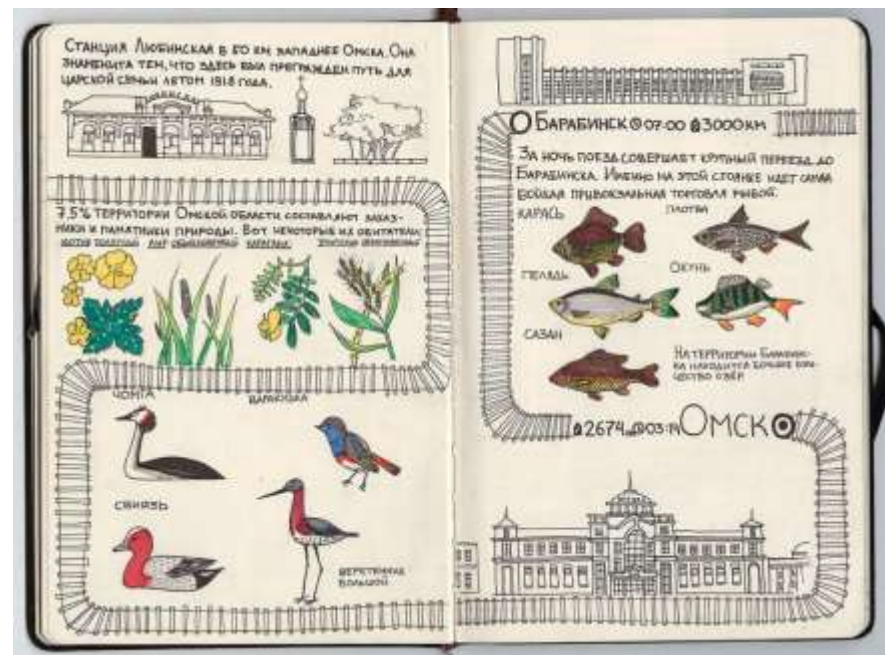 Станция Любинская в 50 км западнее Омска. Она
знаменита тем, что здесь был прегражден путь для
царской семьи летом 1918 года.
7,5% территории Омской области составляют заказ-
ники и памятники природы. Вот некоторые их обитатели:
Чомга
Варакушка
Свиязь
Веретенник
большой
Барабинск 07:00 3000км
За ночь поезд совершает крупный переезд до
Барабинска. Именно на этой стоянке идет самая
бойкая привокзальная торговля рыбой.
Карась
Плотва
Пелядь
Окунь
Сазан
На территории Барабинс-
ка находится большое коли-
чество озёр
2674 03:14 Омск